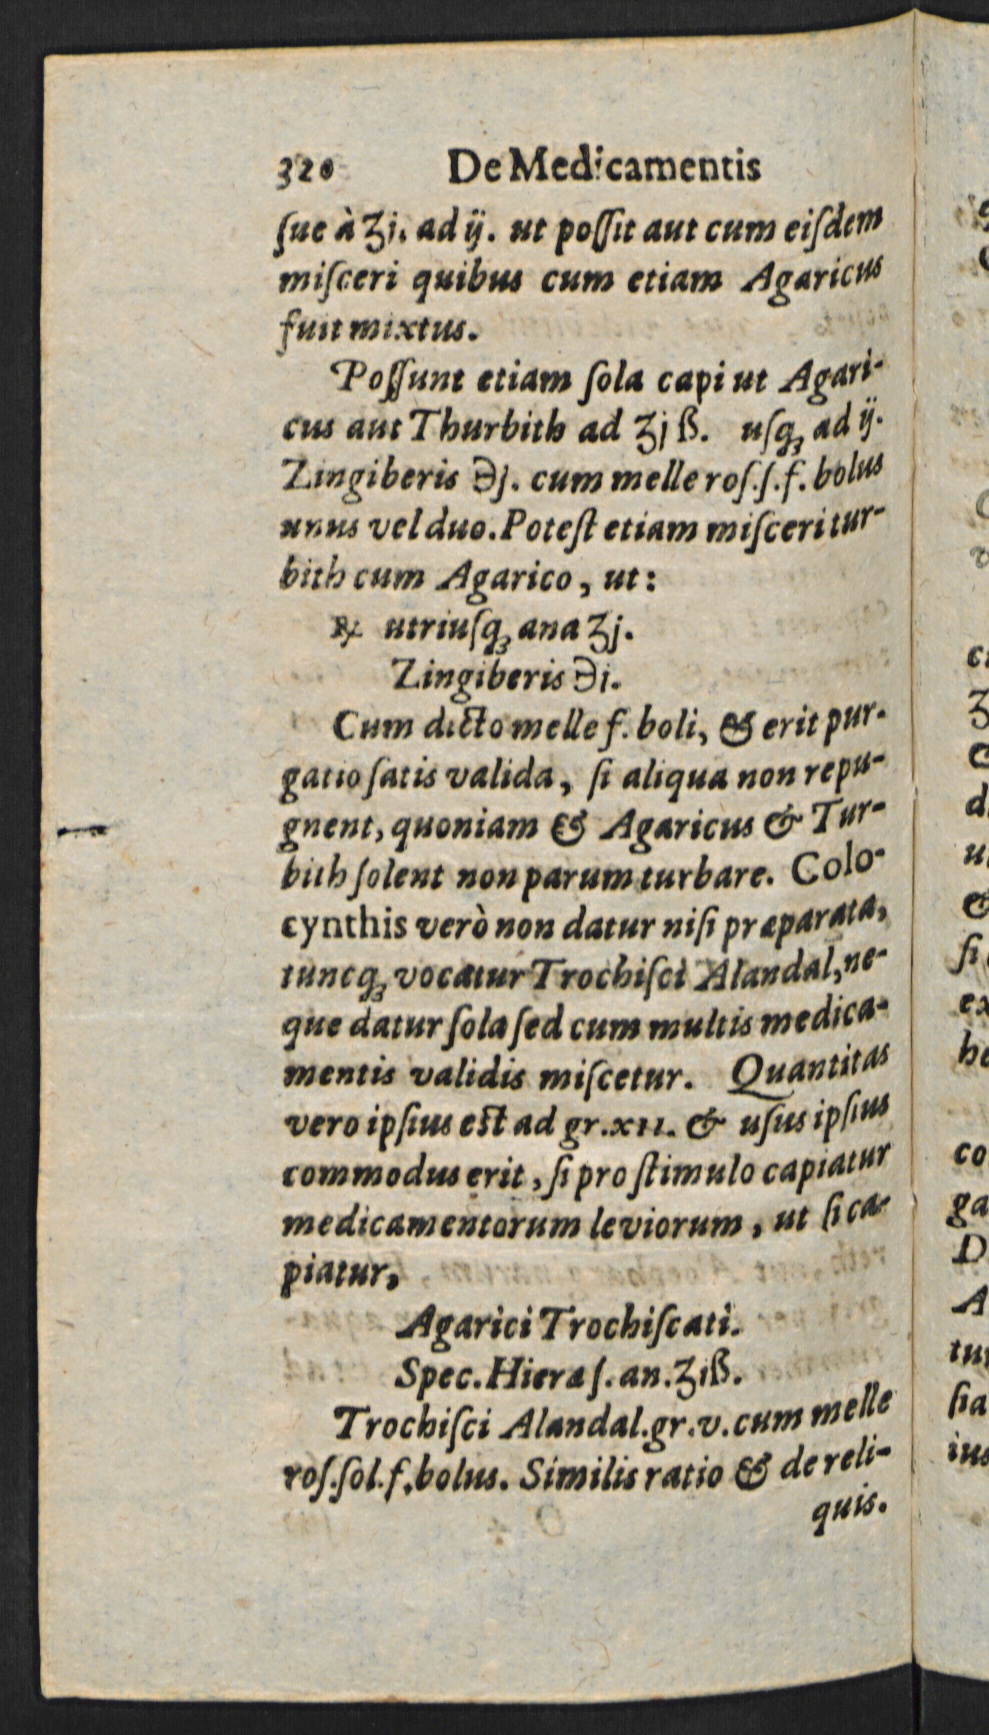 320 De Medicamentis
ſue à ʒi. ad ij. ut poſſit aut cum eiſdem
miſceri quibus cum etiam Agaricus
fuit mixtus.
Poſſunt etiam ſola capi ut Agari-
cus aut Thurbith ad ʒj ß. uſq́ꝫ ad ij.
Zingiberis ℈j. cum melle roſ.ſ.f. bolus
unus vel duo. Poteſt etiam miſceri tur-
bith cum Agarico, ut:
℞ utriuſqꝫ ana ʒj.
Zingiberis ℈i.
Cum dicto melle f. boli, & erit pur-
gatio ſatis valida, ſi aliqua non repu-
gnent, quoniam & Agaricus & Tur-
bith ſolent non parum turbare. Colo-
cynthis verò non datur niſi præparata,
tuncqꝫ vocatur Trochiſci Alandal, ne-
que datur ſola ſed cum multis medica-
mentis validis miſcetur. Quantitas
vero ipſius eſt ad gr.xii. & uſus ipſius
commodus erit, ſi pro ſtimulo capiatur
medicamentorum leviorum, ut ſi ca-
piatur,
Agarici Trochiſcati.
Spec. Hieræ ſ. an. ʒiß.
Trochiſci Alandal. gr.v. cum melle
roſ.ſol.f. bolus. Similis ratio & de reli-
quis.